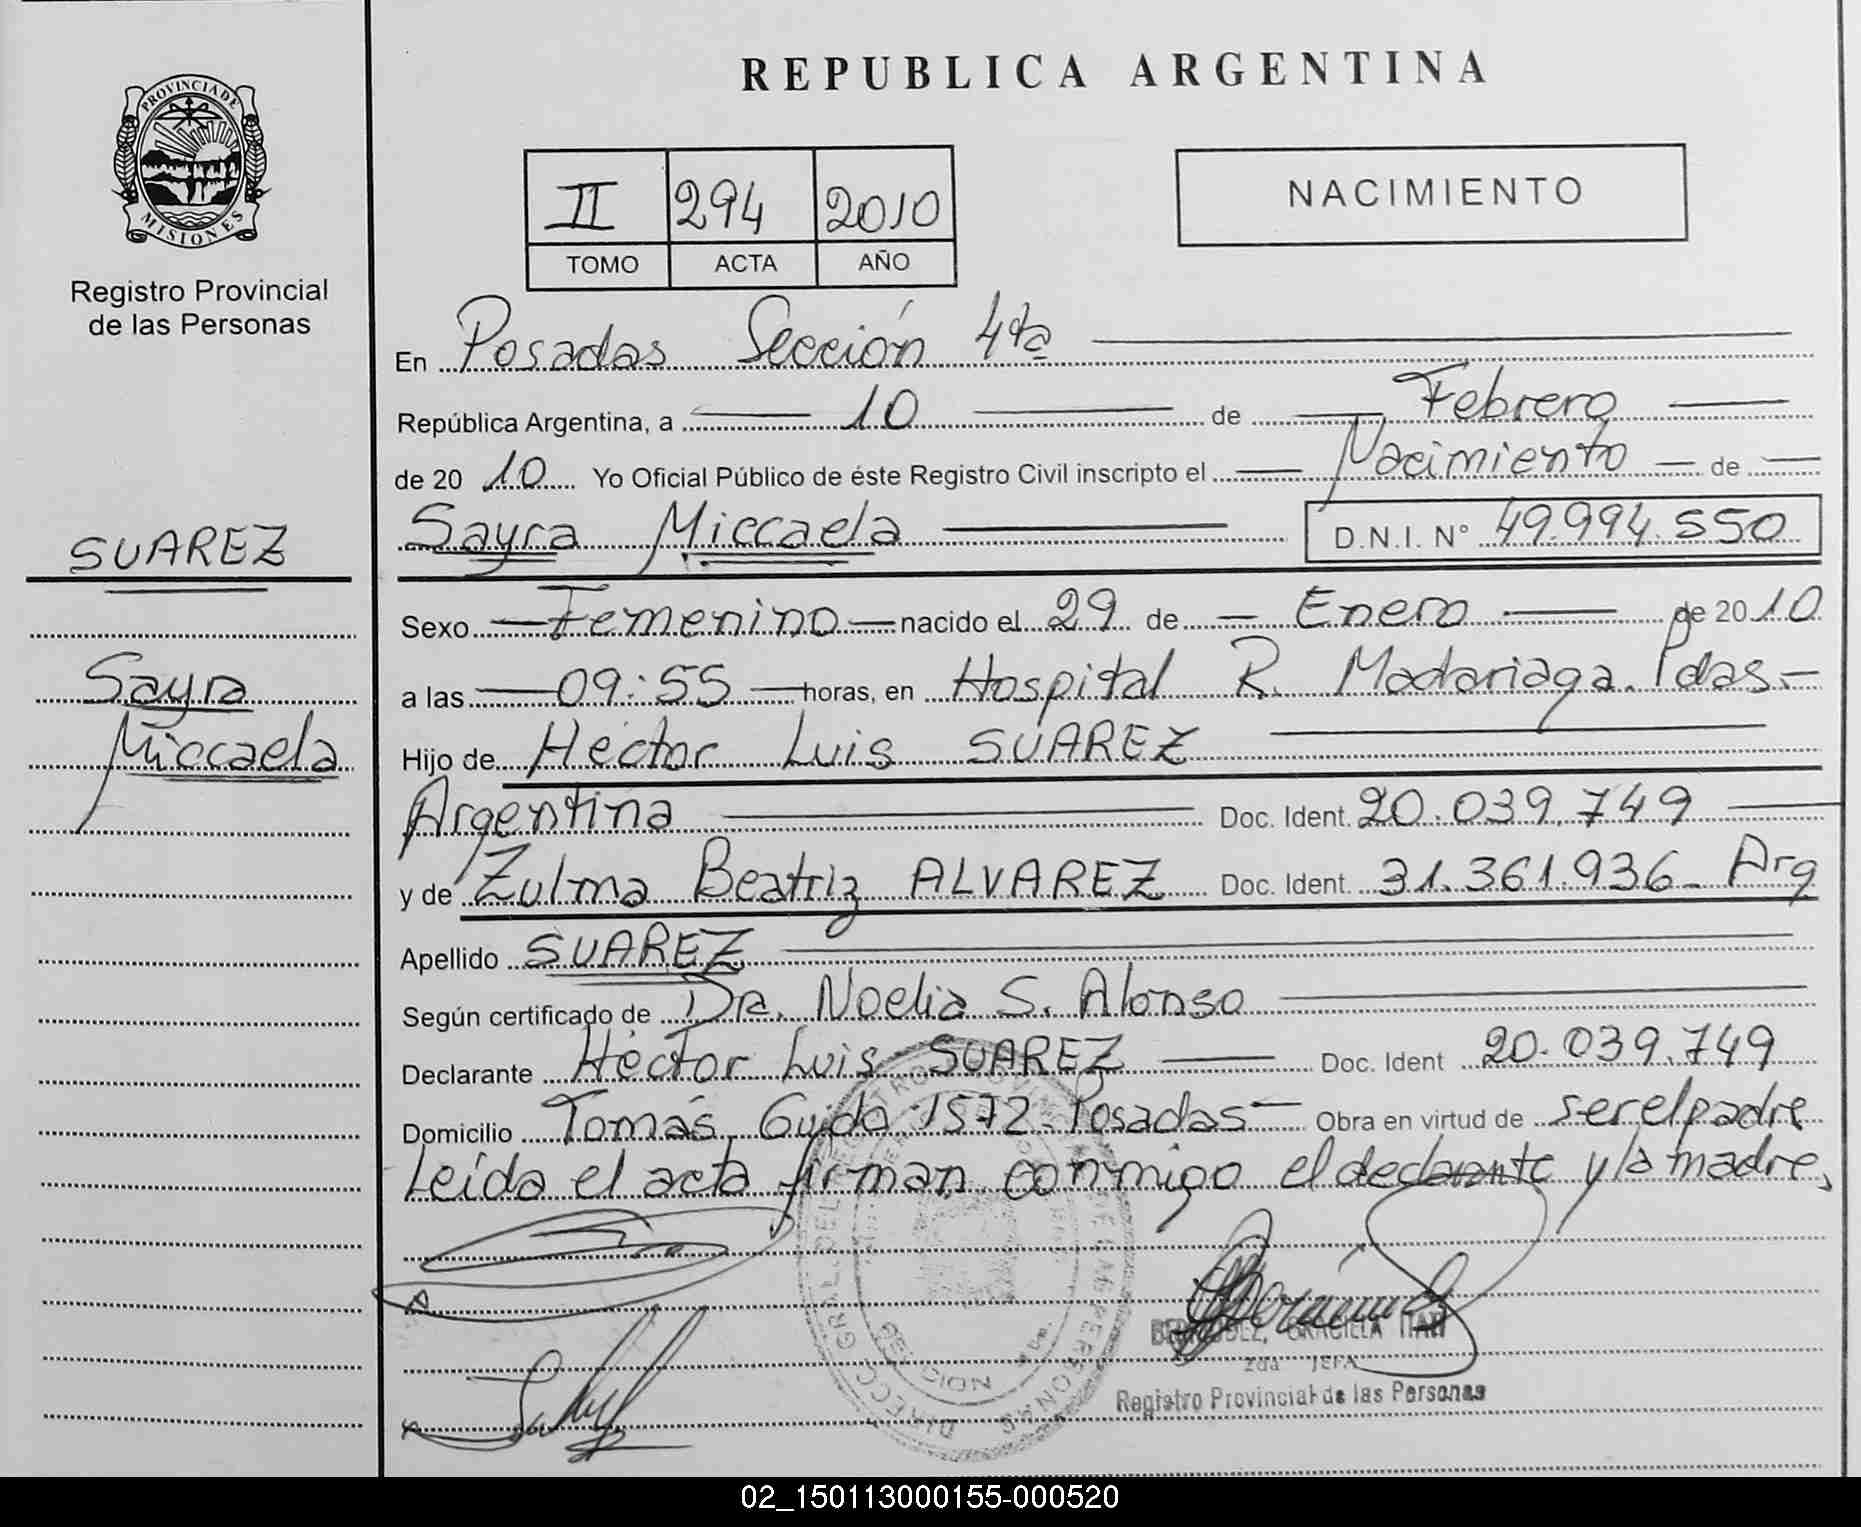 PROVINCIA DE
MISIONES
Registro Provincial
de las Personas
SUAREZ
Sayra
Miccaela
REPUBLICA ARGENTINA
II 294 2010
TOMO ACTA AÑO
NACIMIENTO
En Posadas Sección 4ta
República Argentina, a 10 de Febrero
de 20 10 Yo Oficial Público de éste Registro Civil inscripto el Nacimiento de
Sayra Miccaela D.N.I. Nº 49.994.550
Sexo Femenino nacido el 29 de Enero de 20 10
a las 09:55 horas, en Hospital R. Madariaga. Pdas.-
Hijo de Héctor Luis SUAREZ
Argentina Doc. Ident. 20.039.749
y de Zulma Beatriz ALVAREZ Doc. Ident. 31.361.936- Arg
Apellido SUAREZ
Según certificado de Dra. Noelia S. Alonso
Declarante Héctor Luis SUAREZ Doc. Ident 20.039.749
Domicilio Tomás Guido 1572- Posadas- Obra en virtud de ser el padre
Leída el acta firman conmigo el declarante y la madre,
BERMUDEZ, GRACIELA ITATI
2da JEFA
Registro Provincial de las Personas
02_150113000155-000520